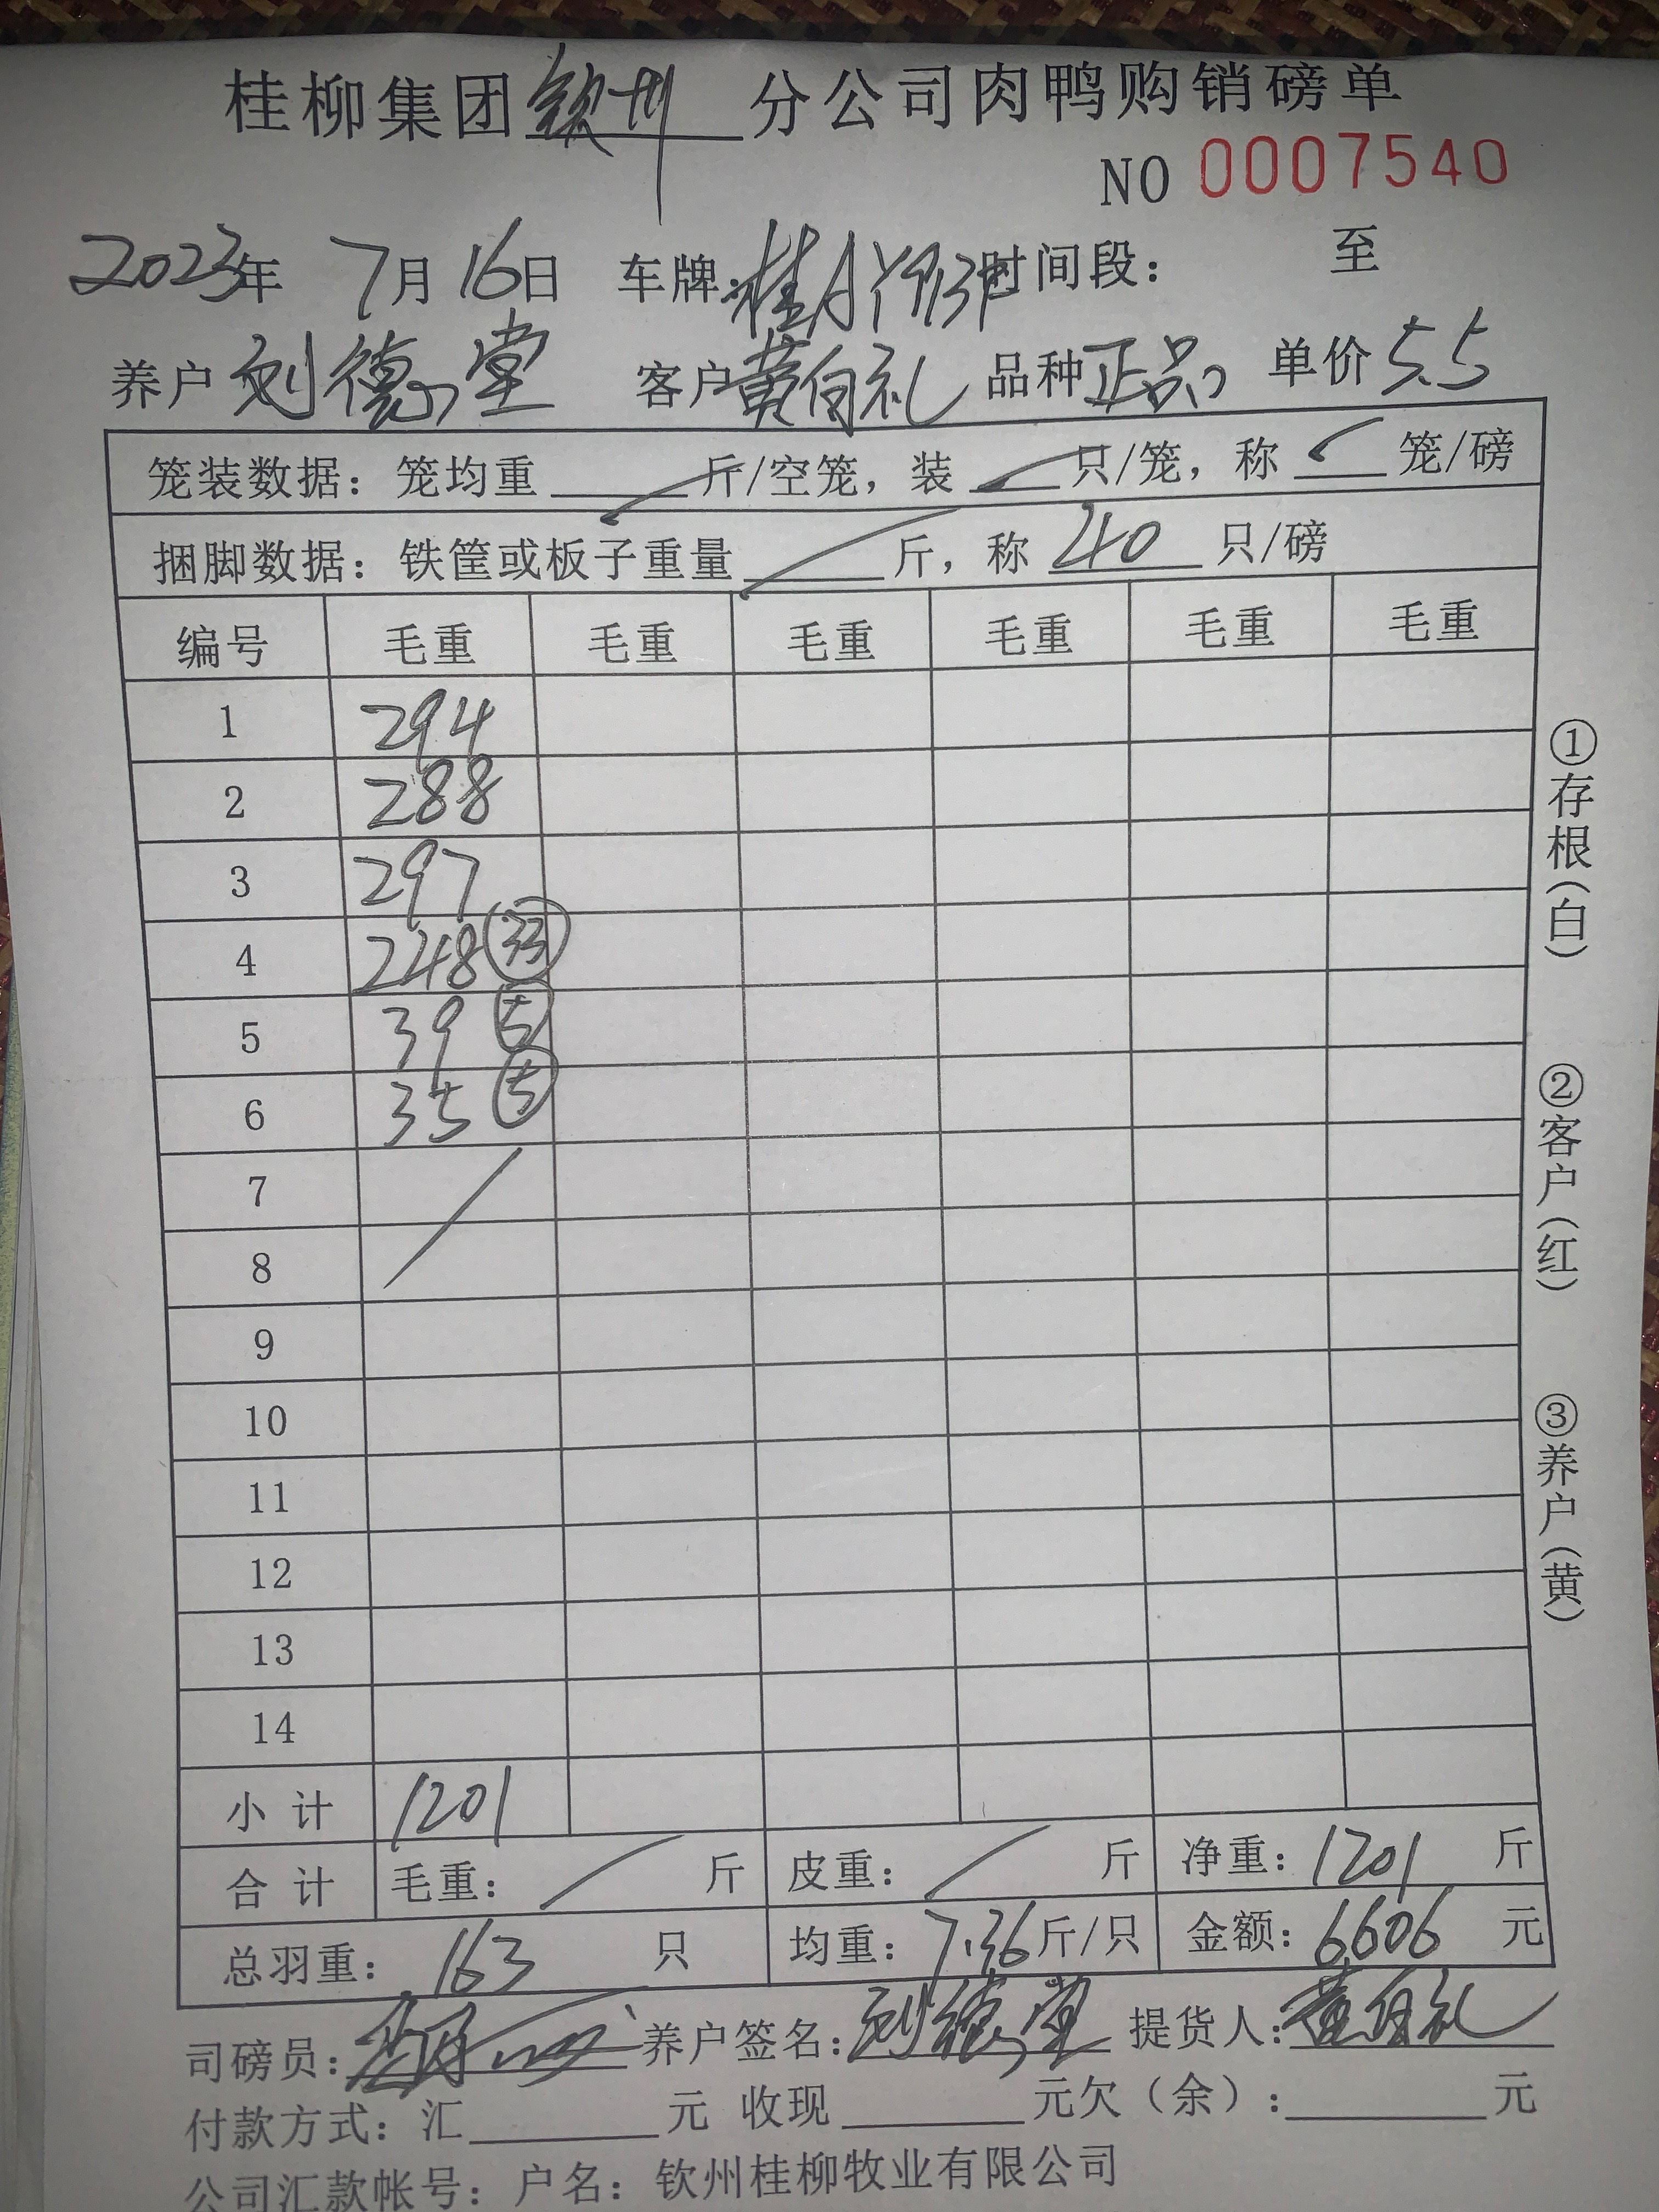 桂柳集团钦州分公司肉鸭购销磅单
NO 0007540
2023年 7月16日 车牌:桂AY913P时间段: 至
养户 刘德堂 客户 黄自礼 品种 正品 单价 5.5
笼装数据: 笼均重 斤/空笼, 装 只/笼, 称 笼/磅
捆脚数据: 铁筐或板子重量 斤, 称 240 只/磅
编号 毛重 毛重 毛重 毛重 毛重 毛重
1 294
2 288
3 297
4 248 33
5 39 5
6 35 5
7
8
9
10
11
12
13
14
小计 1201
合计 毛重: 斤 皮重: 斤 净重: 1201 斤
总羽重: 163 只 均重: 7.36斤/只 金额: 6606 元
司磅员: 养户签名: 刘德堂 提货人: 黄自礼
付款方式: 汇 元 收现 元欠(余): 元
公司汇款帐号: 户名: 钦州桂柳牧业有限公司
①存根(白)
②客户(红)
③养户(黄)